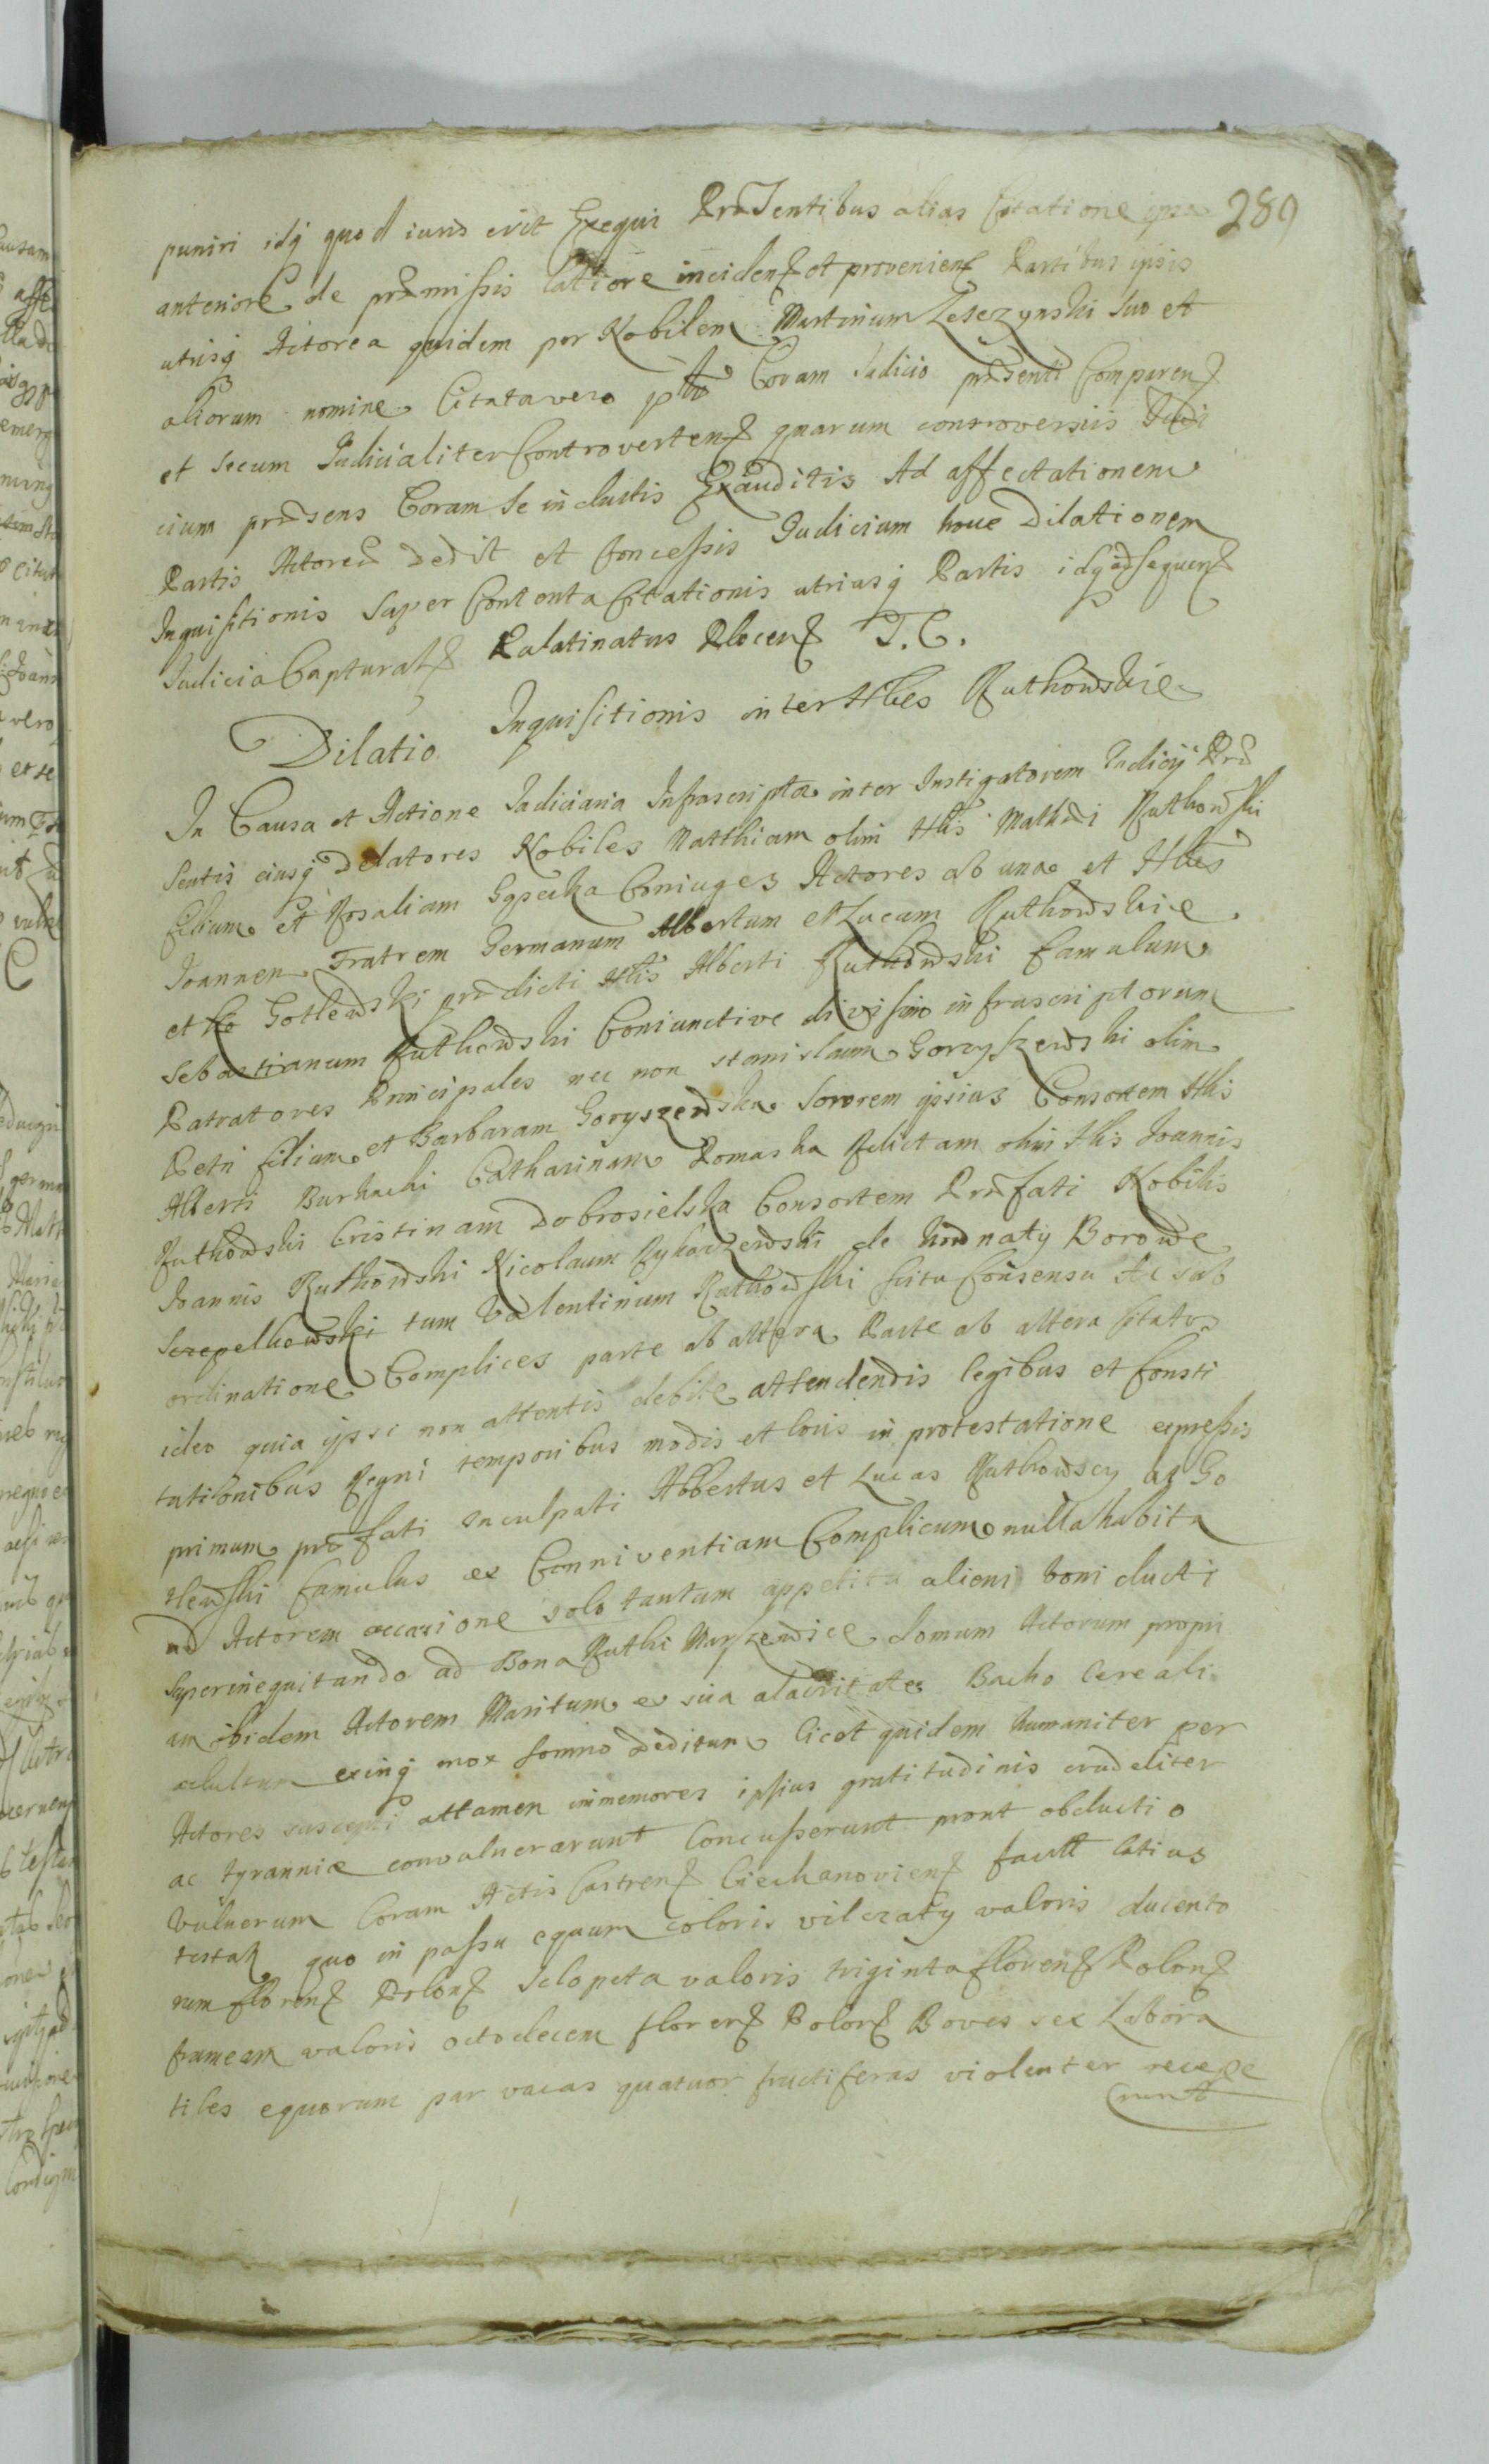 289
puniri idq quod iuris erit Exequi Præsentibus alias Citatione ipsa
anteriore de præmissis latiore incidenᵗ et provenienᵗ Partibus ipsis
utrisq Actorea quidem per Nobilem Martinum Leszczynski suo et
aliorum nomine Citata vero Coram Iudicio præsenti Comparenᵗ
et secum Iudicialiter Controvertenᵗ quarum controversiis Iudi
cium præsens Coram se inductis Exauditis Ad affectationem
Partis Actoreæ dedit et Concessis Iudicium hoce Dilationem
Inquisitionis super Contenta Citationis utriusq Partis idq ad sequenᵗ
Iudicia Capturalᵗ Palatinatus Plocenᵗ T. C.
Dilatio Inquisitionis inter Nles Ruthowskie
In Causa et Actione Iudiciaria Infrascripta inter Instigatorem Iudicij Præ
sentis eiusq Delatores Nobiles Matthiam olim Nlis Mathæi Ruthowski
filium et Rosaliam Gąsecka Coniuges Actores ab una et Nles
Joannem Fratrem Germanum Albertum et Lucam Ruthowskie
et Gotlewski prædicti Nlis Alberti Ruthowski famulum
Sebastianum Ruthowski Coniunctive divisim infrascriptorum
Patratores Principales nec non Stanislaum Goryszewski olim
Petri filium et Barbaram Goryszewska Sororem ipsius Consortem Nlis
Alberti Burhachi Catharinam Romaska Relictam olim Nlis Joannis
Ruthowski Cristinam Dobrosielska Consortem Præfati Nobilis
Joannis Ruthowski Nicolaum Rykaczewski de Borowe
Strzepelkowski tum Valentinum Ruthowski scitu Consensu Ac sub
ordinatione Complices parte ab altera Parte ab altera Citatos
ideo quia ipsi non attentis debite attendendis legibus et Consti
tutionibus Regni temporibus modis et locis in protestatione expressis
primum præfati inculpati Albertus et Lucas Ruthowscy ac Go
tlewski famulus ex Conniventiam Complicum nulla habita
ad Actorem occasione solo tantum appetitu alieni boni ducti
superinequitando ad Bona Ruthi Maszewice domum Actorum propri
am ibidem Actorem Maritum ex sua alacritate Bacho Cereali
adultum exinq mox somno deditum licet quidem humaniter per
Actores suscepti attamen immemores ipsius gratitudinis crudeliter
ac tyranniæ convulnerarunt Concusserunt prout obductio
Vulnerum Coram Actis Castrenᵗ Ciechanovienᵗ factt latius
testatᵗ quo in passu equum coloris vilczaty valoris ducento
rum florenᵗ Polonᵗ Sclopeta valoris triginta florenᵗ Polonᵗ
frameam valoris octodecem florenᵗ Polonᵗ Boves sex Labora
tiles equorum par vacas quatuor fructiferas violenter recepe
runt